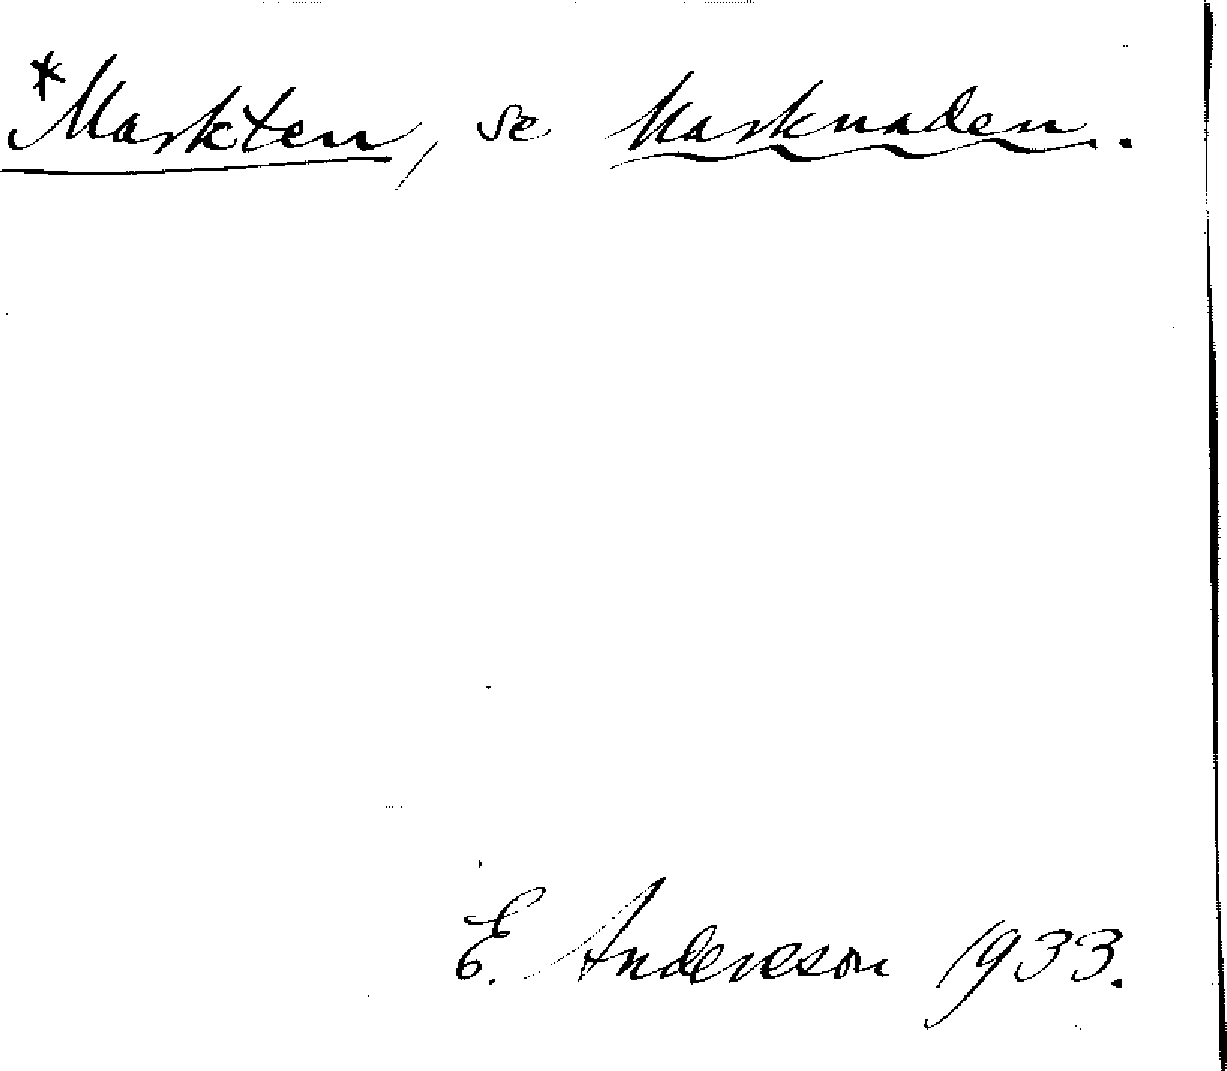 *Markten, se Marknaden.
E. Andersson 1933.